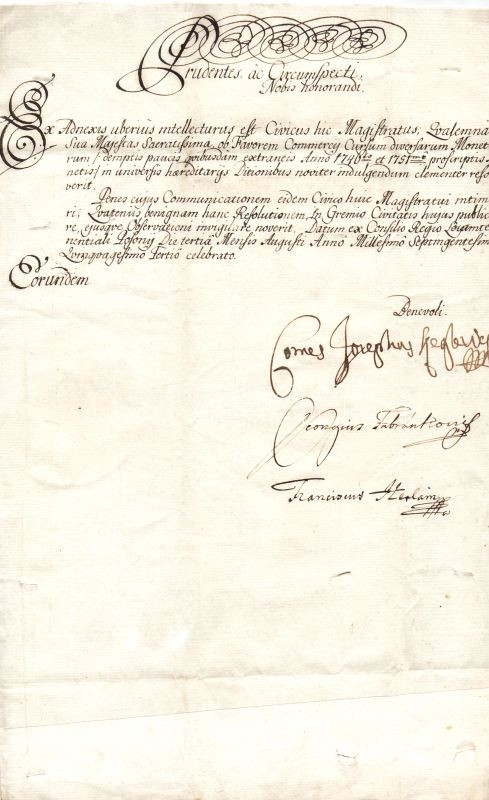 Prudentes, ac Circumspecti,
Nobis honorandi.
Ex Adnexis uberius intellecturus est Civicus hic Magistratus, Qvalemna
Sua Majestas Sacratissima, ob Favorem Commercy Cursum diversarum Monet
rum /:demptis paucis qvibusdam extraneis Anno 1746to et 1751mo proscriptis
netis:/ in universis hæreditarijs Ditionibus noviter indulgendum clementer reso
verit.
Penes cujus Communicationem eidem Civico huic Magistratui intim
ri; Qvatenus benignam hanc Resolutionem, In Gremio Civitatis hujus public
re, ejusqve Observationi invigilare noverit. Datum ex Consilio Regio Locumte
nentiali Posonij Die tertia Mensis Augusti Anno Millesimo Septingentesim
Qvinqvagesimo Tertio celebrato.
Eorundem
Benevoli.
Comes Josephus
Georgius
Franciscus